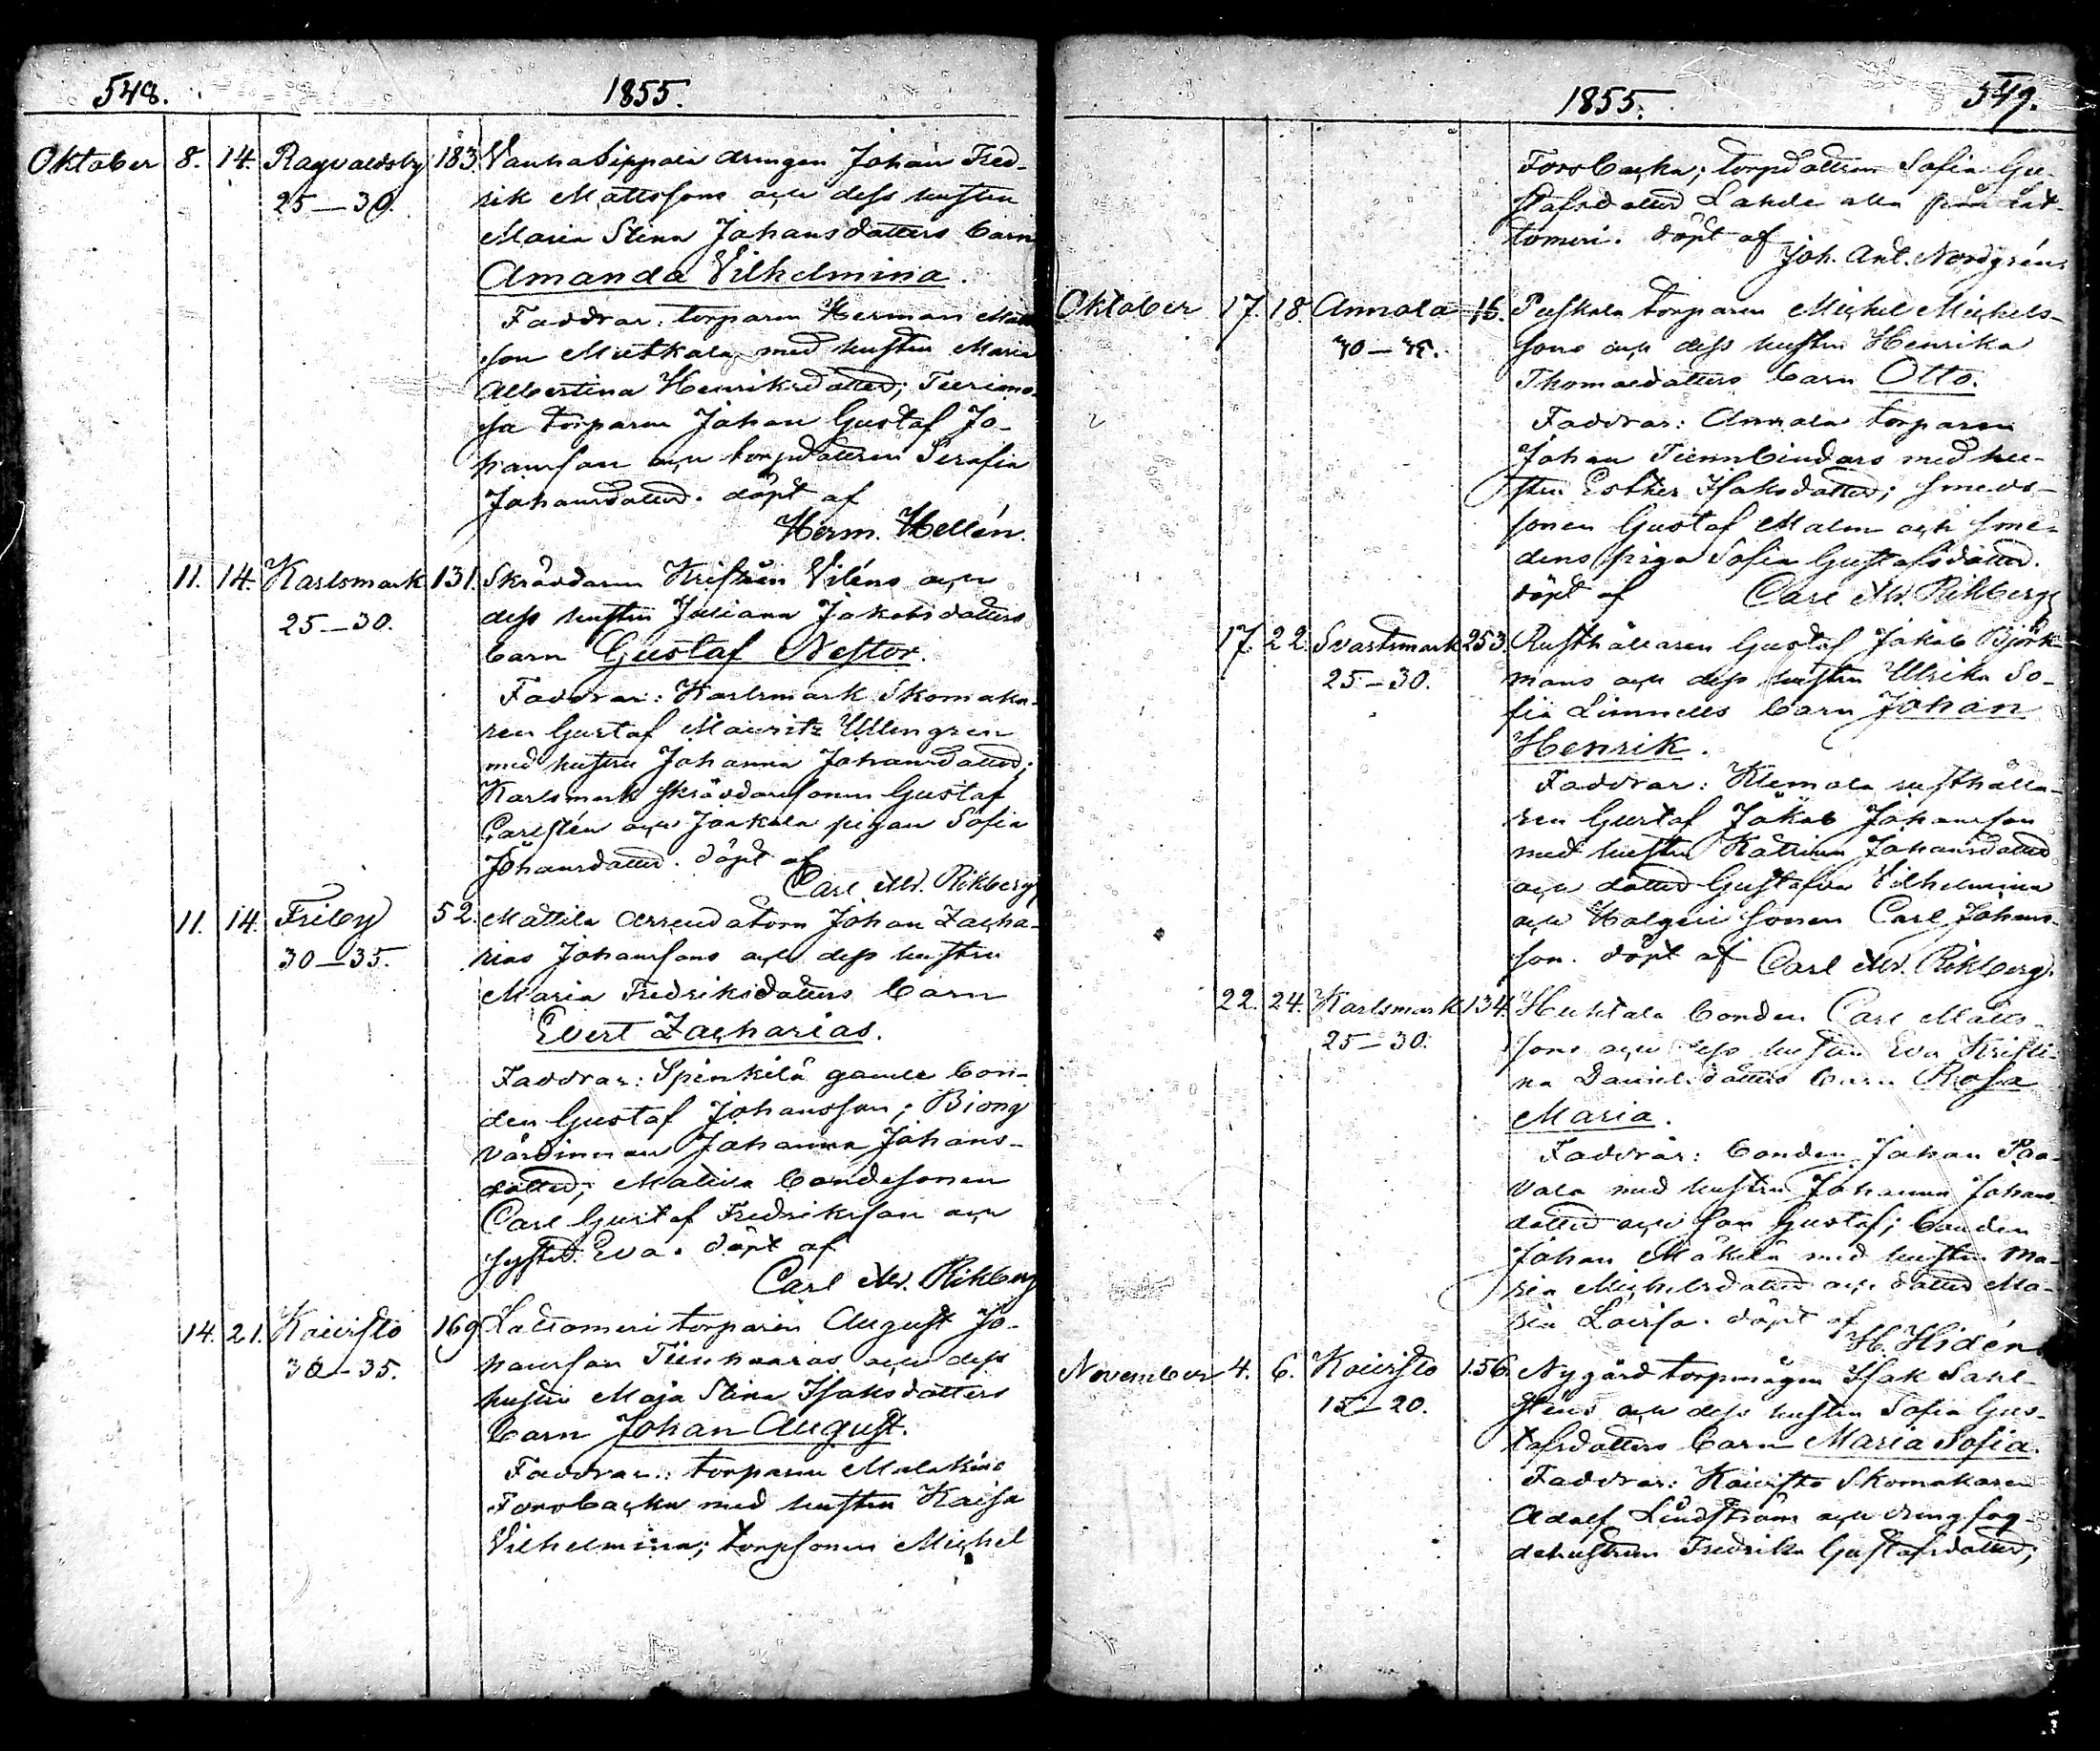 548. 1855.
Oktober 8. 14. Ragvaldsby 183. Vanhasippala drengen Johan Fred-
25-30. rik Mattssons och dess hustru
Maria Stina Johansdatters barn
Amanda Vilhelmina.
Faddrar: torparen Herman Matt
son Mutkala med hustru Maria
Albertina Henriksdatter;
sa torparen Johan Gustaf Jo-
hansson och torpdattren Serafia
Johansdatter. döpt af
Herm. Hellén.
11. 14. Karlsmark 131. Skräddaren Kristian Viléns och
25-30. dess hustru Juliana Jakobsdatters
barn Gustaf Nestor.
Faddrar: Karlsmark Skomaka-
ren Gustaf Mauritz Ullengren
med hustru Johanna Johansdatter;
Karlsmark skräddaresonen Gustaf
Carlstén och Jaakala pigan Sofia
Johansdatter. döpt af
Carl Mr. Rikberg
11. 14. Friby 52. Mattila Arrendatorn Johan Zacha-
30-35. rias Johanssons och dess hustru
Maria Fredriksdatters barn
Evert Zacharias.
Faddrar: Spinkilä gamle bon-
den Gustaf Johansson; Biong
värdinnan Johanna Johans-
datter; Mattila bondesonen
Carl Gustaf Fredriksson och
syster Eva. döpt af
Carl Mr. Rikberg
14. 21. Koivisto 169 Lattomeri torparen August Jo-
30-35. hansson Tienhaaras och dess
hustru Maja Stina Isaksdatters
barn Johan August.
Faddrar: torparen Malakias
Forsbacka med hustru Kaisa
Vilhelmina; torpsonen Michel
1855. 549.
Forsbacka; torpdattren Sofia Gu-
stafsdatter Lahde alla från Lat-
tomeri. döpt af
Joh. Ant. Nordgrén.
Oktober 17. 18. Annala 16. Puskala torparen Michel Michels-
30-35. sons och dess hustru Henrika
Thomasdatters barn Otto.
Faddrar: Annala torparen
Johan med hu-
stru Esther Isaksdatter; smeds-
sonen Gustaf Malm och sme-
dens piga Sofia Gustafsdatter.
döpt af Carl Mr. Rikberg
17. 22. Svartsmark 253. Rusthållaren Gustaf Jakob Björk-
25-30. mans och dess hustru Ulrika So-
fia Linnells barn Johan
Henrik.
Faddrar: Klemola rusthålla-
ren Gustaf Jakob Johansson
med hustru Katrina Johansdatter
och datter Gustafva Vilhelmina
och Holgeri sonen Carl Johans-
son. döpt af Carl Mr. Rikberg.
22. 24. Karlsmark 134. Huhtala bonden Carl Matts-
25-30. sons och dess hustru Eva Kristi-
na Danielsdatters barn Rosa
Maria.
Faddrar: bonden Johan Paa-
vala med hustru Johanna Johans
datter och son Gustaf; bonden
Johan Mäkelä med hustru Ma-
ria Michelsdatter och datter Ma-
ria Lovisa. döpt af
H. Hidén.
November 4. 6. Koivisto 156. Nygård torpmågen Isak Sahl-
15-20. sténs och dess hustru Sofia Gus-
tafsdatters barn Maria Sofia.
Faddrar: Koivisto Skomakaren
Adolf Lindström och drengfog-
dehustrun Fredrika Gustafsdatter;